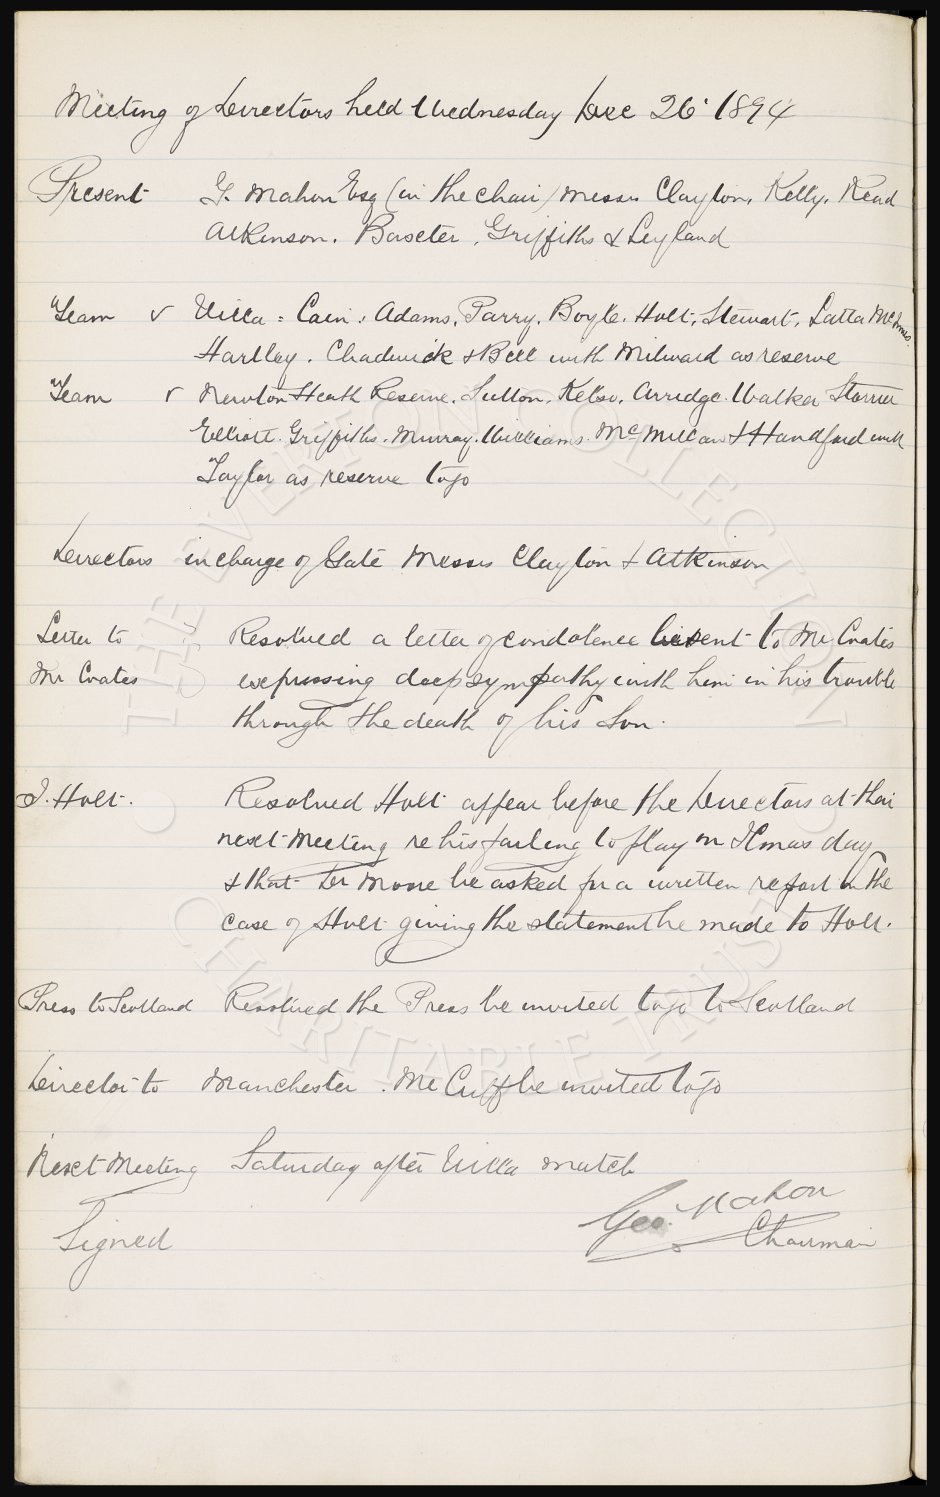 Meeting of Directors held Wednesday Dec 26 1894
Present G. Mahon Esq (in the chair) Messrs Clayton, Kelly, Read
Atkinson. Baxter, Griffiths & Leyland
Team v Villa = Cain, Adams, Parry, Boyle, Holt, Stewart, Latta McInnes
Hartley. Chadwick & Bell with Milward as reserve
Team v Newton Heath Reserve. Sutton, Kelso, Arridge. Walker Storrier
Elliott. Griffiths. Murray. Williams. McMillan & Handford with
Taylor as reserve to go
Directors in charge of Gate Messrs Clayton & Atkinson
Letter to Resolved a letter of condolence be sent to Mr Coates
Mr Coates expressing deep sympathy with him in his trouble
through the death of his Son.
J. Holt. Resolved Holt appear before the Directors at their
next Meeting re his failing to play on Xmas day
& that Dr Moore be asked for a written report in the
case of Holt giving the statement he made to Holt.
Press to Scotland Resolved the Press be invited to go to Scotland
Director to Manchester. Mr Cuff be invited to go
Next Meeting Saturday after Villa match
Geo. Mahon
Signed Chairman
THE EVERTON COLLECTION
CHARITABLE TRUST